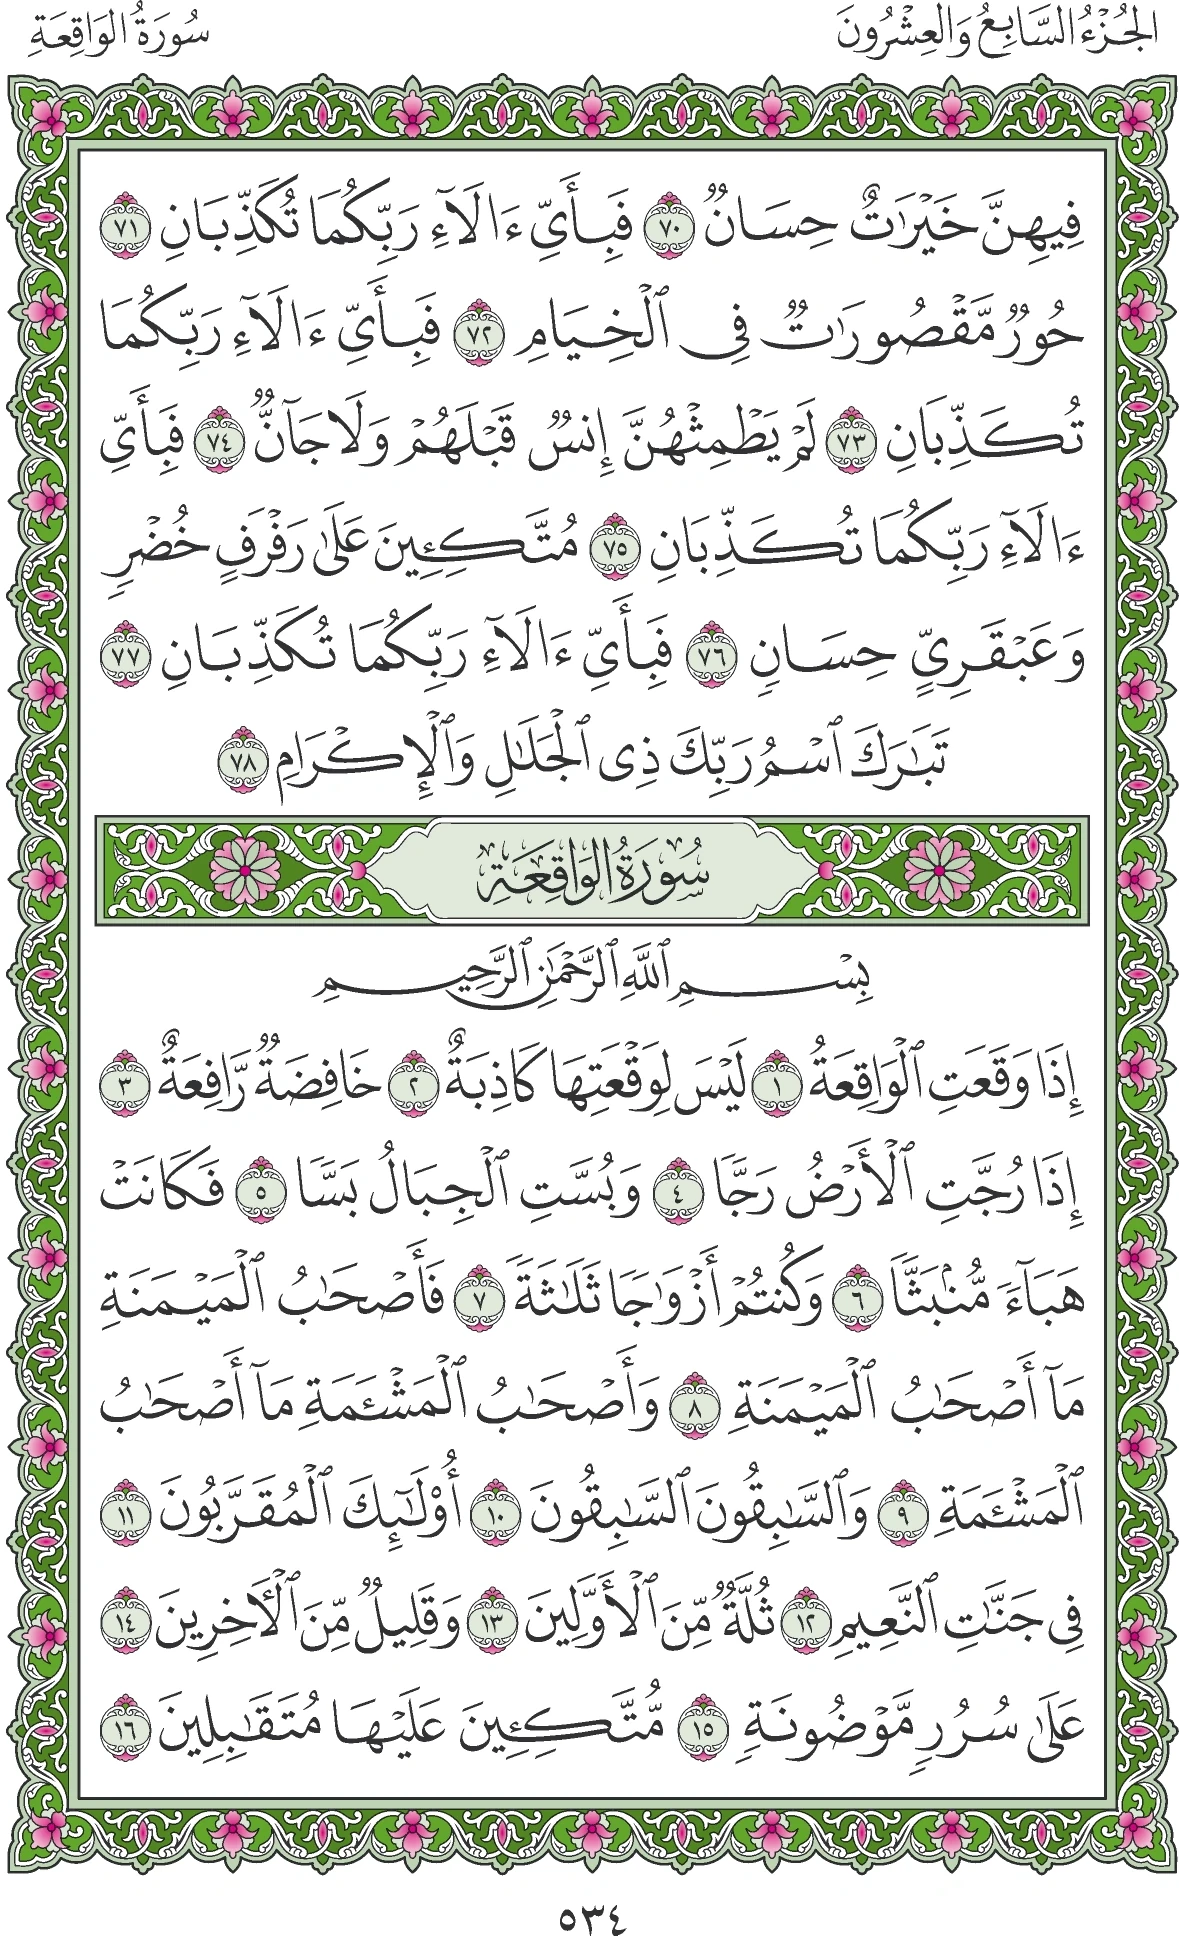 الجُزْءُ السَّابِعُ وَالْعِشْرُونَ
سُورَةُ الوَاقِعَةِ
فِيهِنَّ خَيْرَٰتٌ حِسَانٌ ٧٠ فَبِأَيِّ ءَالَآءِ رَبِّكُمَا تُكَذِّبَانِ ٧١
حُورٌ مَّقْصُورَٰتٌ فِى ٱلْخِيَامِ ٧٢ فَبِأَىِّ ءَالَآءِ رَبِّكُمَا
تُكَذِّبَانِ ٧٣ لَمْ يَطْمِثْهُنَّ إِنسٌ قَبْلَهُمْ وَلَا جَآنٌّ ٧٤ فَبِأَىِّ
ءَالَآءِ رَبِّكُمَا تُكَذِّبَانِ ٧٥ مُتَّكِـِٔينَ عَلَىٰ رَفْرَفٍ خُضْرٍ
وَعَبْقَرِىٍّ حِسَانٍ ٧٦ فَبِأَىِّ ءَالَآءِ رَبِّكُمَا تُكَذِّبَانِ ٧٧
تَبَٰرَكَ ٱسْمُ رَبِّكَ ذِى ٱلْجَلَٰلِ وَٱلْإِكْرَامِ ٧٨
سُورَةُ الوَاقِعَةِ
بِسْمِ ٱللَّهِ ٱلرَّحْمَٰنِ ٱلرَّحِيمِ
إِذَا وَقَعَتِ ٱلْوَاقِعَةُ ١ لَيْسَ لِوَقْعَتِهَا كَاذِبَةٌ ٢ خَافِضَةٌ رَّافِعَةٌ ٣
إِذَا رُجَّتِ ٱلْأَرْضُ رَجًّا ٤ وَبُسَّتِ ٱلْجِبَالُ بَسًّا ٥ فَكَانَتْ
هَبَآءً مُّنۢبَثًّا ٦ وَكُنتُمْ أَزْوَٰجًا ثَلَٰثَةً ٧ فَأَصْحَٰبُ ٱلْمَيْمَنَةِ
مَآ أَصْحَٰبُ ٱلْمَيْمَنَةِ ٨ وَأَصْحَٰبُ ٱلْمَشْـَٔمَةِ مَآ أَصْحَٰبُ
ٱلْمَشْـَٔمَةِ ٩ وَٱلسَّٰبِقُونَ ٱلسَّٰبِقُونَ ١٠ أُو۟لَٰٓئِكَ ٱلْمُقَرَّبُونَ ١١
فِى جَنَّٰتِ ٱلنَّعِيمِ ١٢ ثُلَّةٌ مِّنَ ٱلْأَوَّلِينَ ١٣ وَقَلِيلٌ مِّنَ ٱلْـَٔاخِرِينَ ١٤
عَلَىٰ سُرُرٍ مَّوْضُونَةٍ ١٥ مُّتَّكِـِٔينَ عَلَيْهَا مُتَقَٰبِلِينَ ١٦
٥٣٤